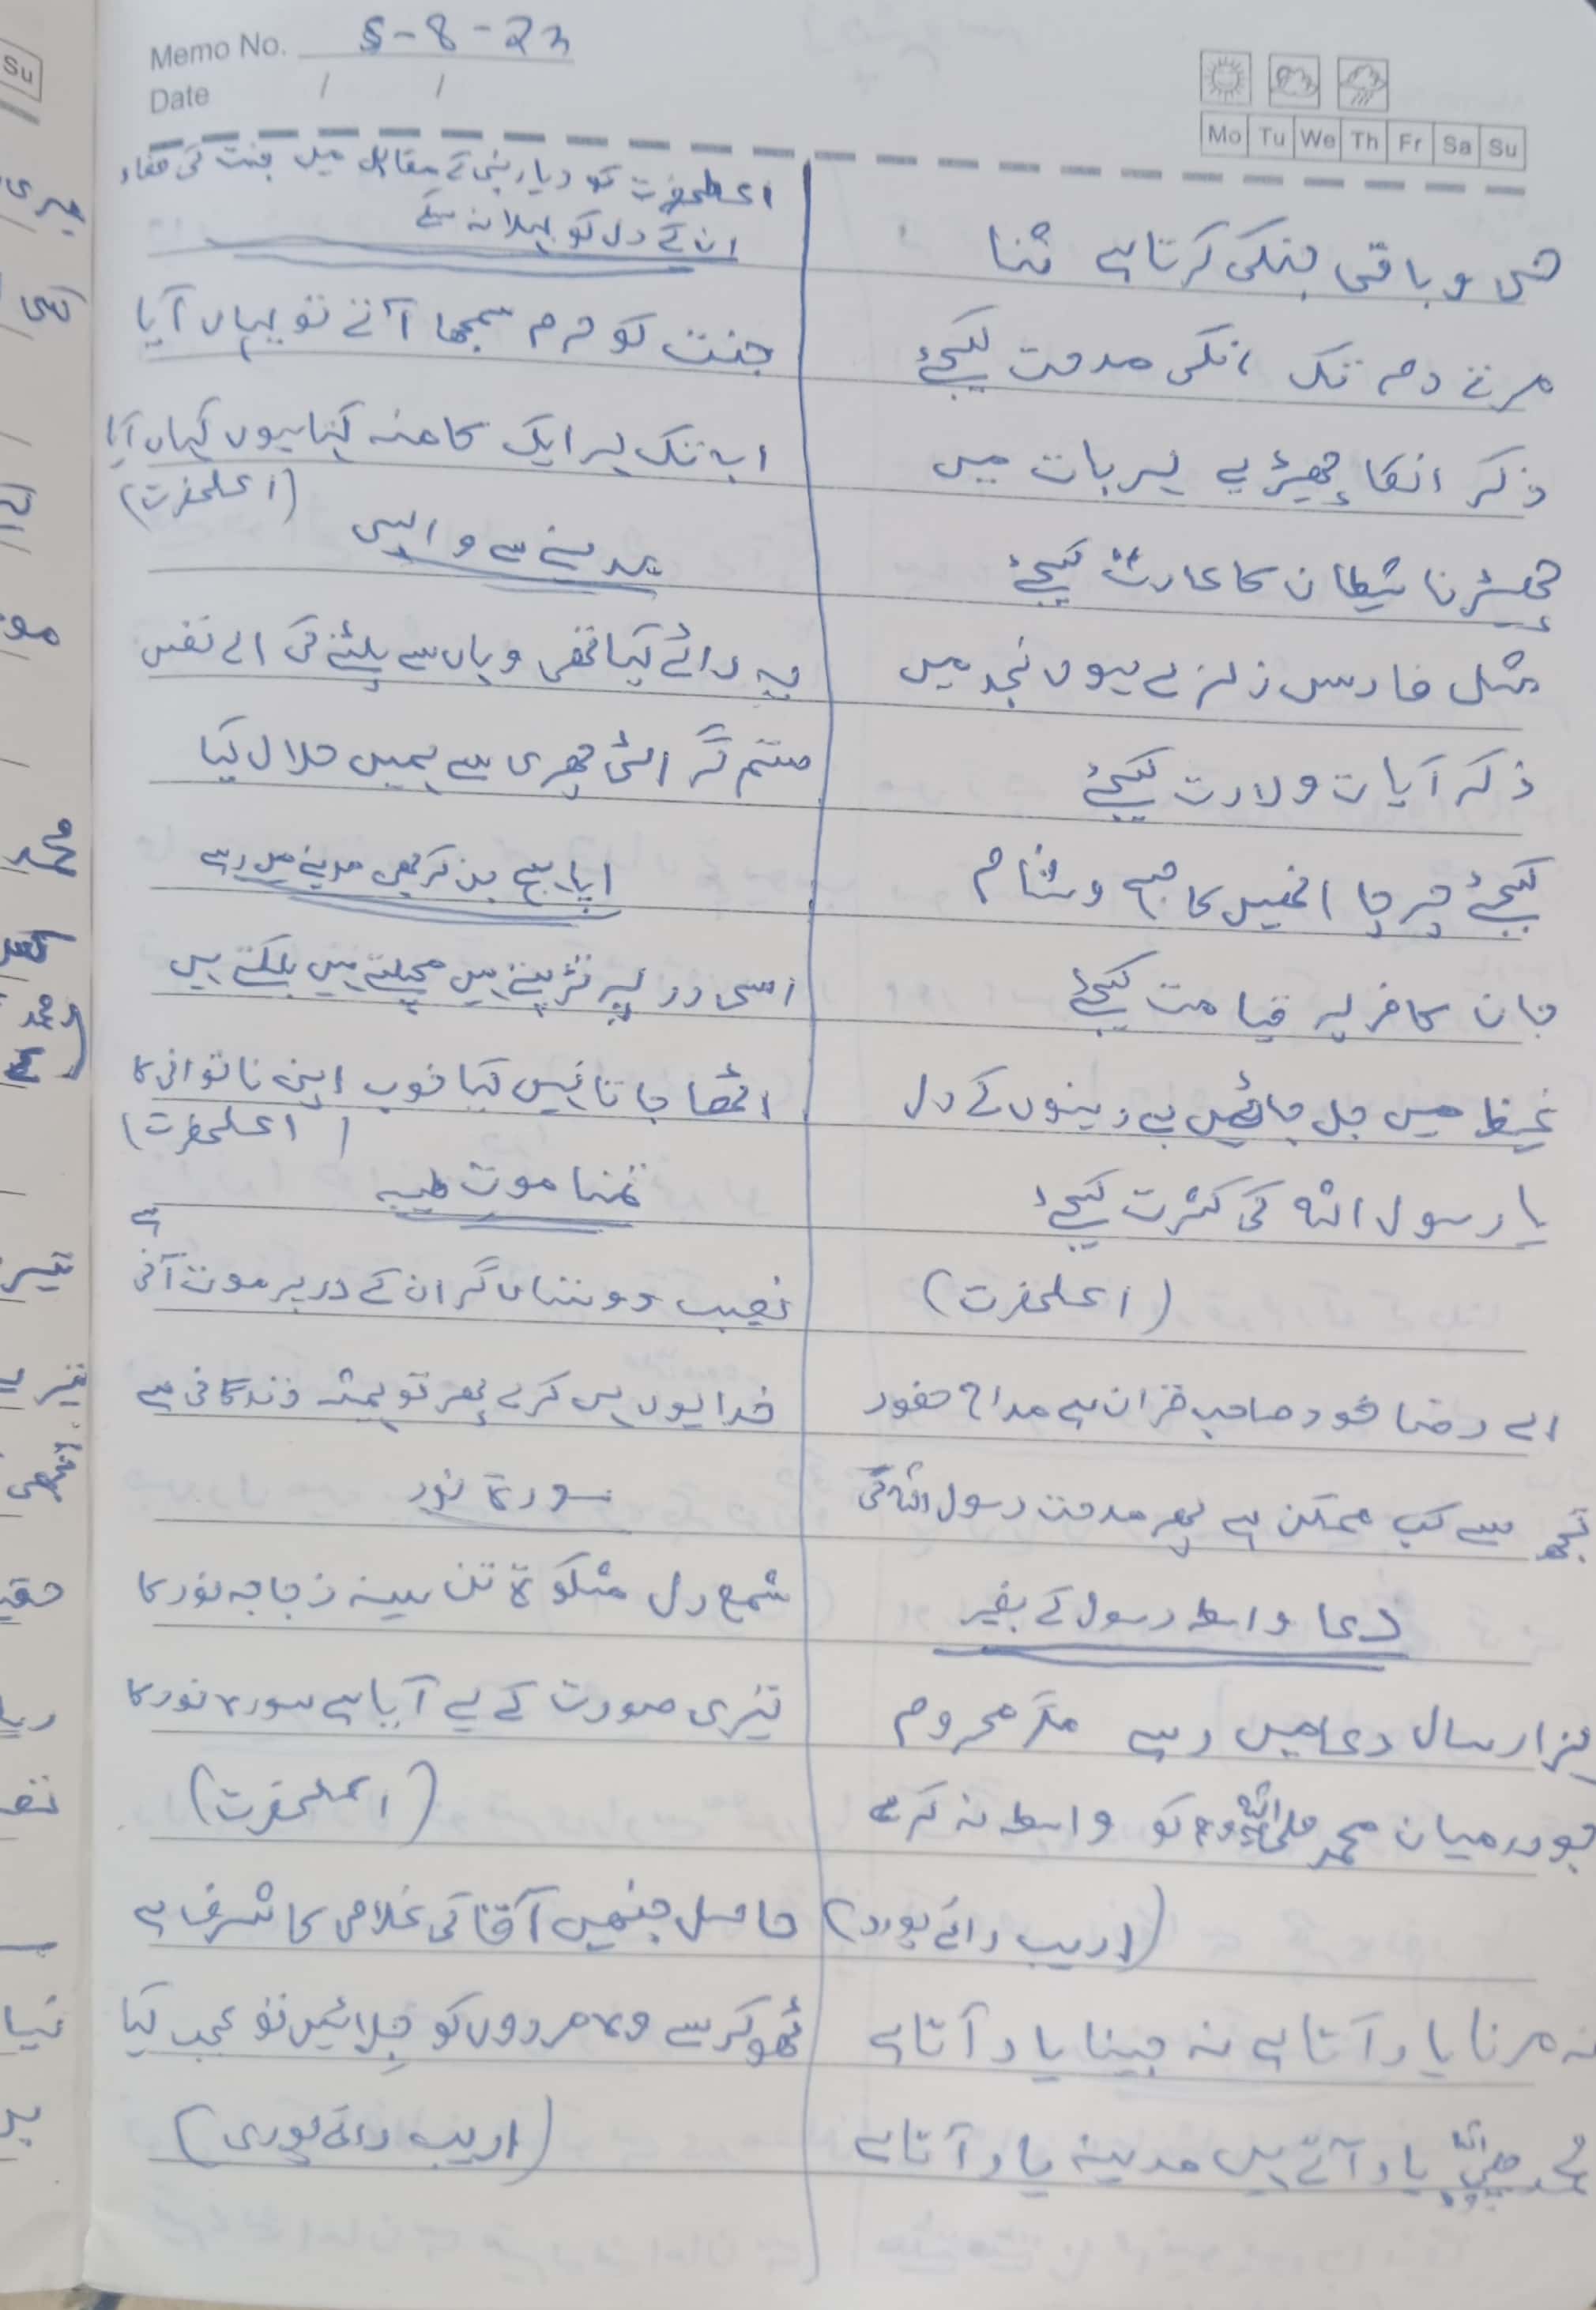 Memo No. 5-8-23
Date / /
Mo Tu We Th Fr Sa Su
حی و باقی جنکی کرتا ہے ثنا
مرتے دم تک انکی مدحت کیجئے
ذکر انکا چھیڑیے ہر بات میں
چھیڑنا شیطان کا عادت کیجئے
مثل فارس زلزلے ہوں نجد میں
ذکر آیات ولادت کیجئے
کیجئے چرچا انھیں کا صبح و شام
جان کافر پہ قیامت کیجئے
غیظ میں جل جائیں بے دینوں کے دل
یا رسول اللہ کی کثرت کیجئے
(اعلحضرت)
اے رضا خود صاحب قران ہے مداح حضور
تجھ سے کب ممکن ہے پھر مدحت رسول اللہ کی
دعا واسطہ رسول کے بغیر
ہزار سال دعا میں رہے مگر محروم
جو درمیان محمد صلی اللہ کو واسطہ نہ کرے
(ادیب رائے پوری)
نہ مرنا یاد آتا ہے نہ جینا یاد آتا ہے
محمد یاد آتے ہیں مدینہ یاد آتا ہے
اعلحضرت کو دیار نبی کے مقابل میں جنت کی فضاء
ان کے دل کو بہلا نہ سکے
جنت کو حرم سمجھا آتے تو یہاں آیا
اب تک ہر ایک کا منہ کہتا ہوں کہاں آیا
(اعلحضرت)
مدینے سے واپسی
یہ رائے کیا تھی وہاں سے پلٹنے کی اے نفس
ستم گر الٹی چھری سے ہمیں حلال کیا
اپاہج بن کر بھی مدینے میں رہے
اسی در پہ تڑپتے ہیں مچلتے ہیں بلکتے ہیں
اٹھا جاتا نہیں کیا خوب اپنی ناتوانی کا
(اعلحضرت)
تمنا موت طیبہ
نصیب دوستاں گر ان کے در پر موت آنی ہے
خدا یوں ہی کرے پھر تو ہمیشہ زندگانی ہے
سورۃ نور
شمع دل مشکوۃ تن سینہ زجاجہ نور کا
تیری صورت کے لیے آیا ہے سورہ نور کا
(اعلحضرت)
حاصل جنھیں آقا کی غلامی کا شرف ہے
ٹھوکر سے وہ مردوں کو جِلائیں تو عجب کیا
(ادیب رائے پوری)